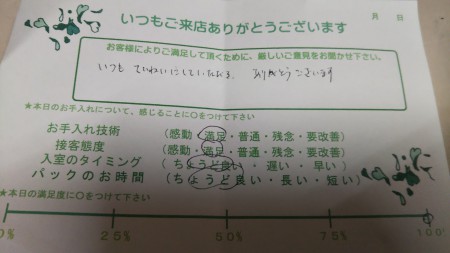 いつもご来店ありがとうございます
月 日
お客様によりご満足して頂くために、厳しいご意見をお聞かせ下さい。
いつも ていねいにしていただき、ありがとうございます
★本日のお手入れについて、感じることに○をつけて下さい
お手入れ技術 (感動・満足・普通・残念・要改善)
接客態度 (感動・満足・普通・残念・要改善)
入室のタイミング (ちょうど良い・遅い・早い)
パックのお時間 (ちょうど良い・長い・短い)
★本日の満足度に○をつけて下さい
0% 25% 50% 75% 100%